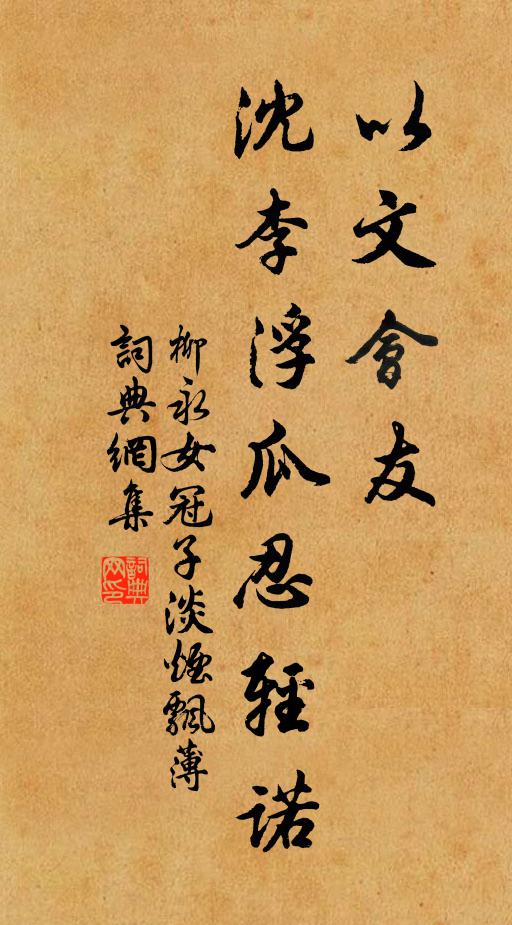 以文會友
沈李浮瓜忍輕諾
柳永女冠子淡煙飄薄
詞典網集
詞典網印